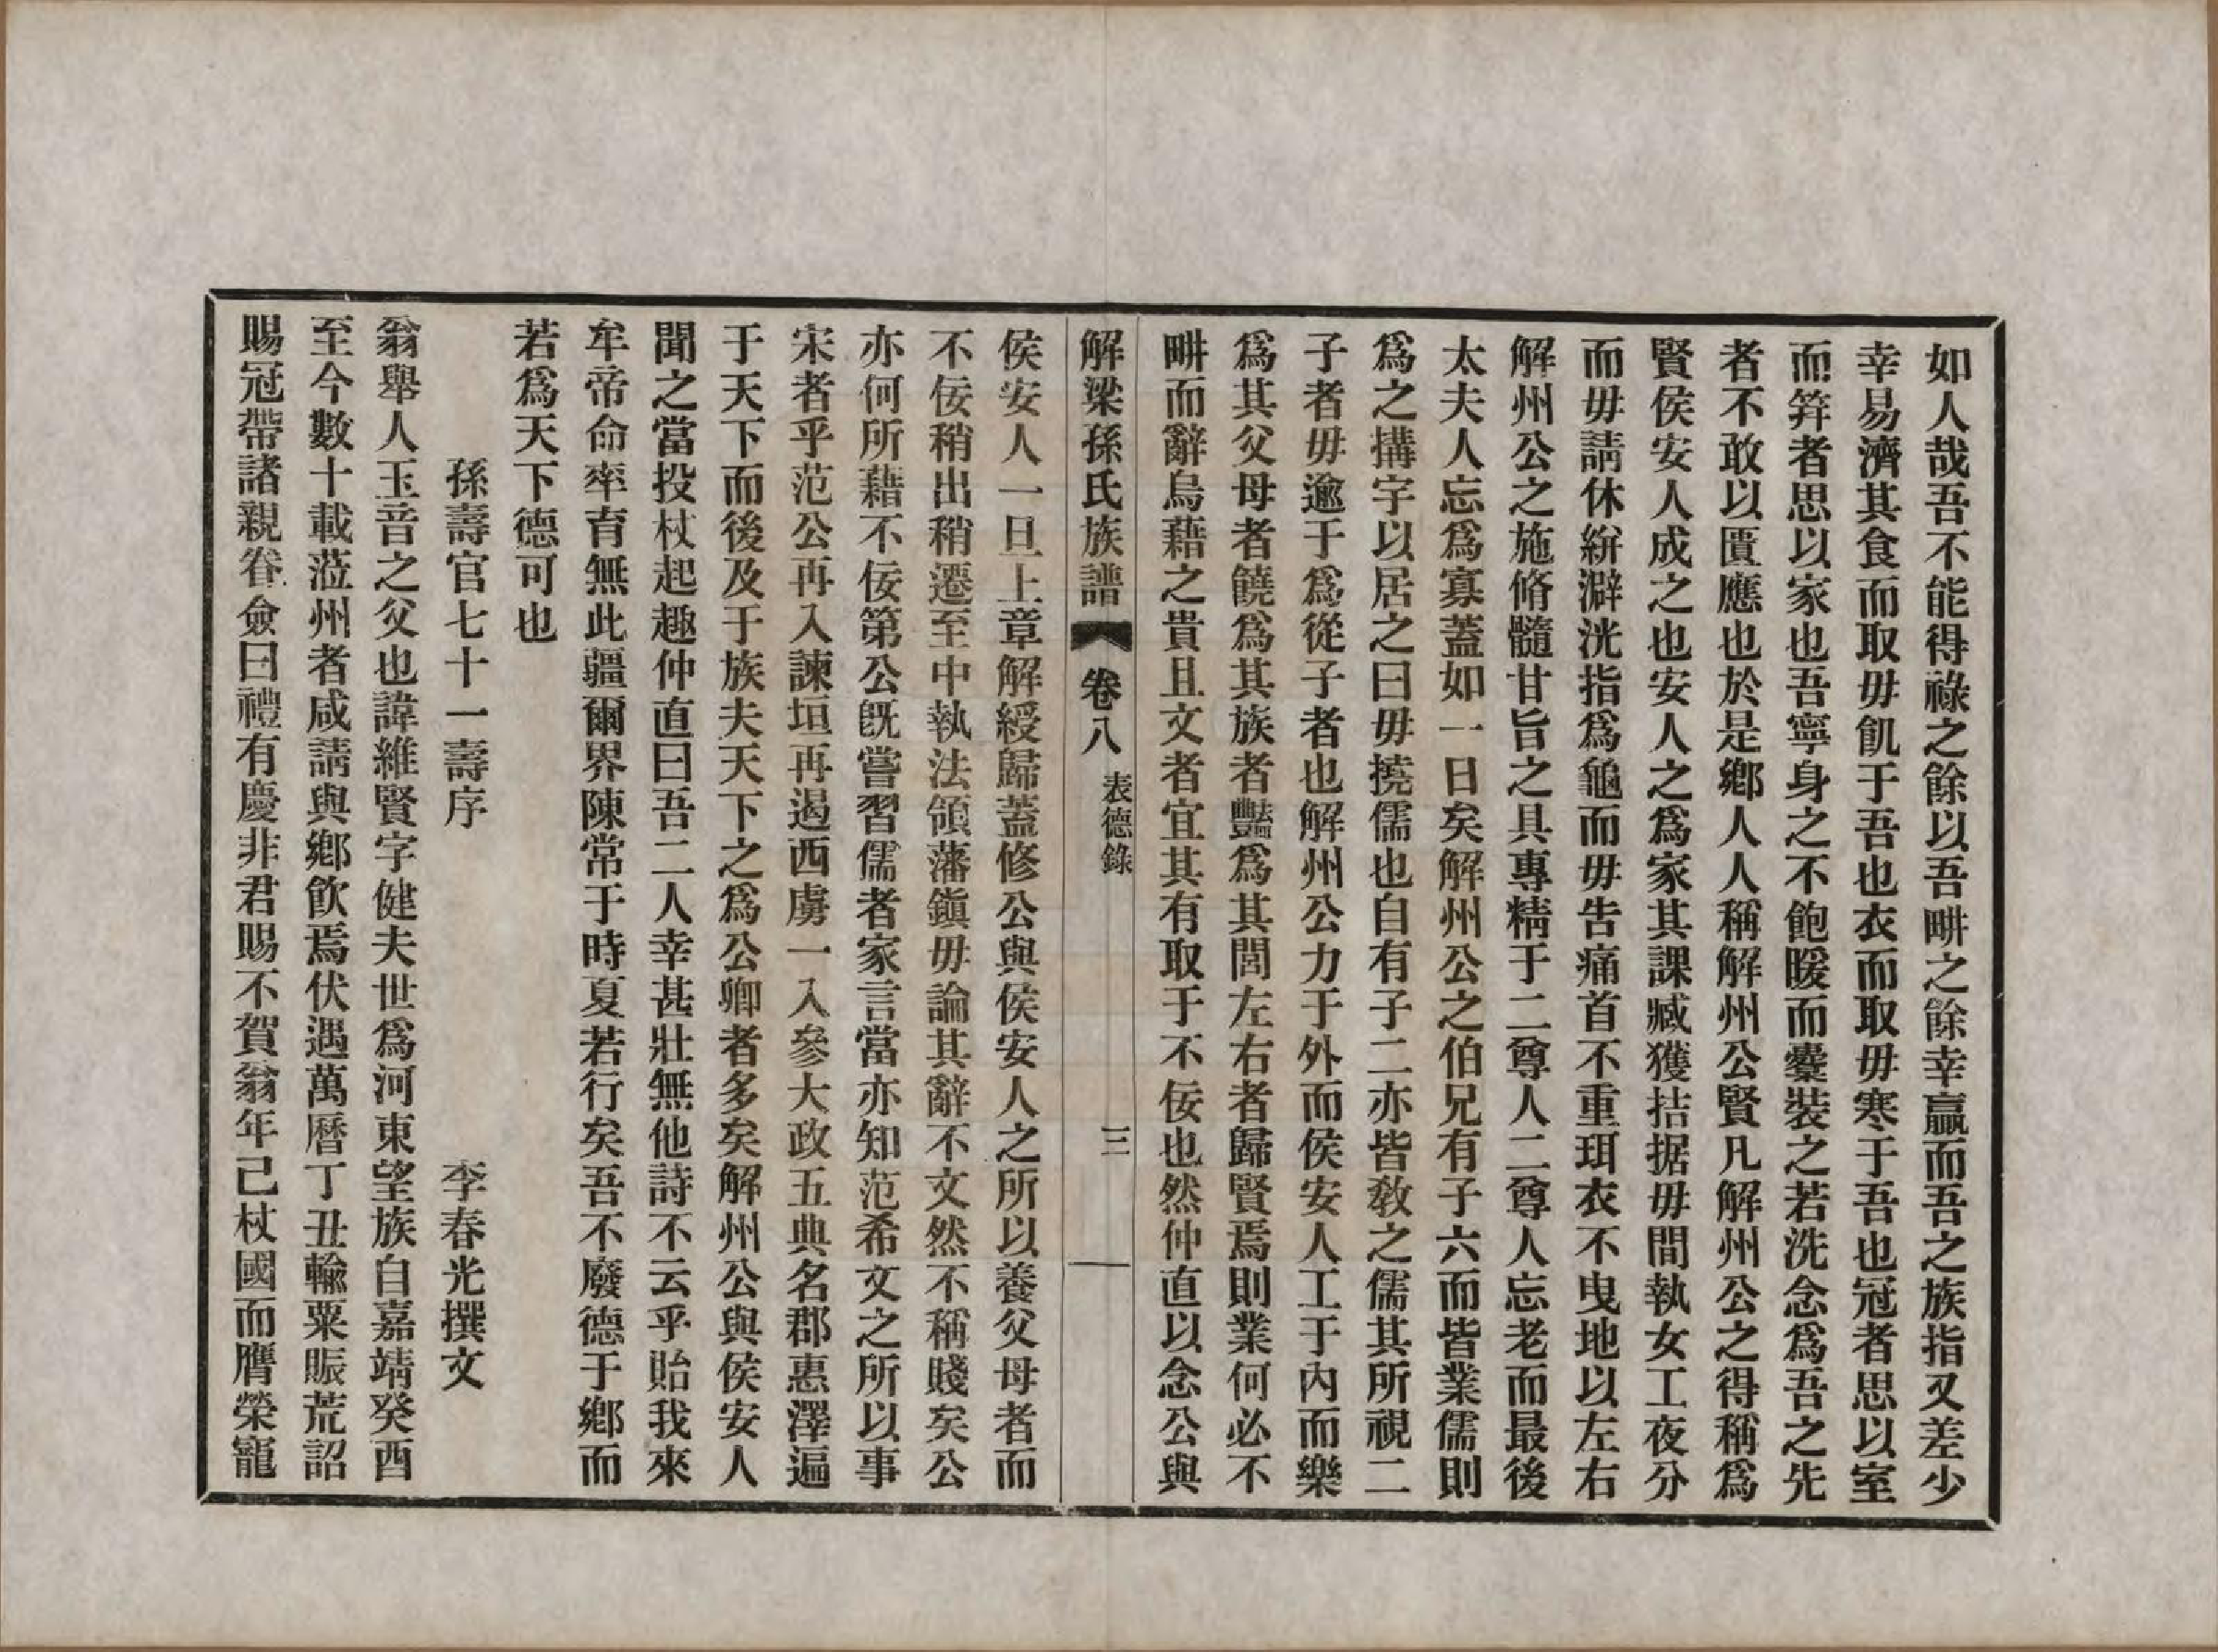 如人哉吾不能得祿之餘以吾畊之餘幸贏而吾之族指又差少
幸易濟其食而取毋飢于吾也衣而取毋寒于吾也冠者思以室
而笄者思以家也吾寧身之不飽暖而橐裝之若洗念爲吾之先
者不敢以匱應也於是鄉人人稱解州公賢凡解州公之得稱爲
賢侯安人成之也安人之爲家其課臧獲拮据毋間執女工夜分
而毋請休絣澼洸指爲龜而毋告痛首不重珥衣不曳地以左右
解州公之施脩髓甘旨之具專精于二尊人二尊人忘老而最後
太夫人忘爲寡蓋如一日矣解州公之伯兄有子六而皆業儒則
爲之搆字以居之曰毋撓儒也自有子二亦皆敎之儒其所視二
子者毋逾于爲從子者也解州公力于外而侯安人工于內而樂
爲其父母者饒爲其族者豔爲其閭左右者歸賢焉則業何必不
畊而辭烏藉之貴且文者宜其有取于不佞也然仲直以念公與
解梁孫氏族譜 卷八 表德錄 三
侯安人一旦上章解綬歸蓋修公與侯安人之所以養父母者而
不佞稍出稍遷至中執法領藩鎭毋論其辭不文然不稱賤矣公
亦何所藉不佞第公旣嘗習儒者家言當亦知范希文之所以事
宋者乎范公再入諫垣再遏西虜一入參大政五典名郡惠澤遍
于天下而後及于族夫天下之爲公卿者多矣解州公與侯安人
聞之當投杖起趣仲直曰吾二人幸甚壯無他詩不云乎貽我來
牟帝命率育無此疆爾界陳常于時夏若行矣吾不廢德于鄉而
若爲天下德可也
孫壽官七十一壽序 李春光撰文
翁舉人玉音之父也諱維賢字健夫世爲河東望族自嘉靖癸酉
至今數十載蒞州者咸請與鄉飮焉伏遇萬曆丁丑輸粟賑荒詔
賜冠帶諸親眷僉曰禮有慶非君賜不賀翁年已杖國而膺榮寵